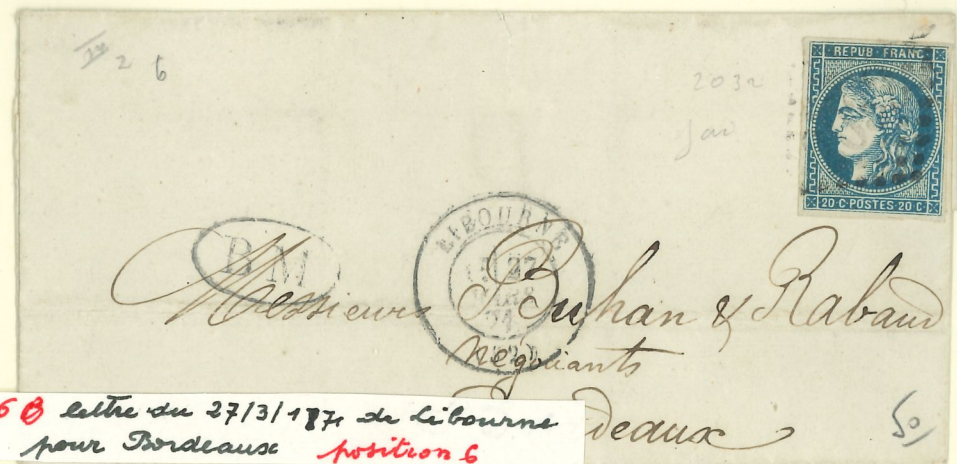 2 6
2032
REPUB·FRANC
20·C·POSTES·20·C
LIBOURNE
27
MARS
71
(32)
BM
Messieurs Buhan & Rabaud
Négociants
Bordeaux
50
lettre du 27/3/1871 de Libourne
pour Bordeaux position 6